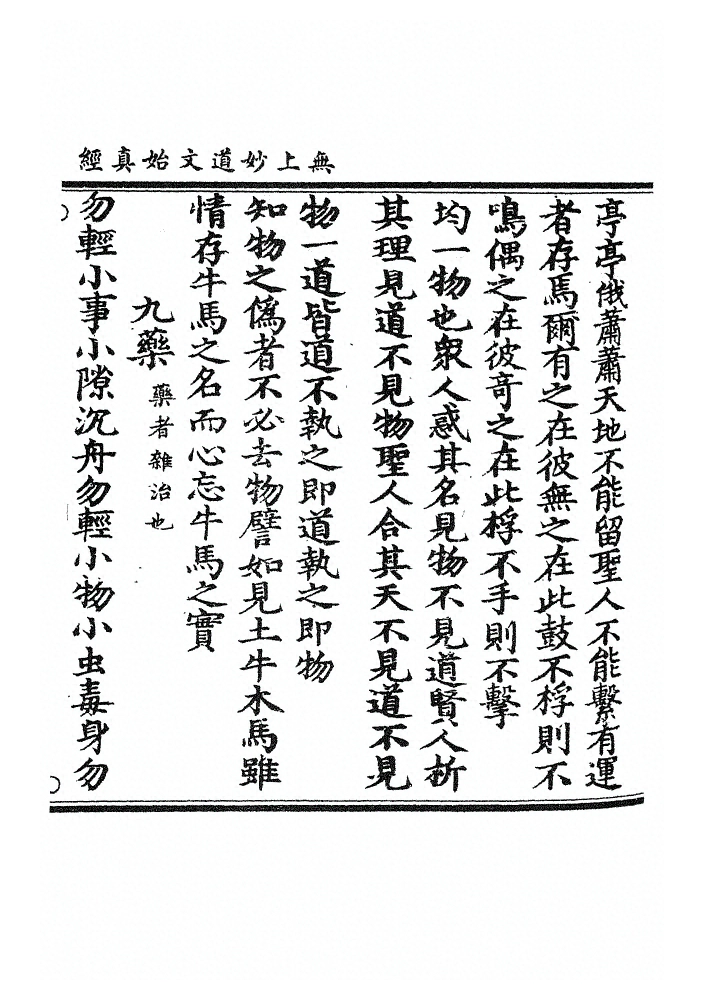 無上妙道文始真經
亭亭俄蕭蕭天地不能留聖人不能繫有運
者存焉爾有之在彼無之在此鼓不桴則不
鳴偶之在彼奇之在此桴不手則不擊
均一物也衆人惑其名見物不見道賢人析
其理見道不見物聖人合其天不見道不見
物一道皆道不執之即道執之即物
知物之僞者不必去物譬如見土牛木馬雖
情存牛馬之名而心忘牛馬之實
九藥 藥者雜治也
勿輕小事小隙沉舟勿輕小物小虫毒身勿